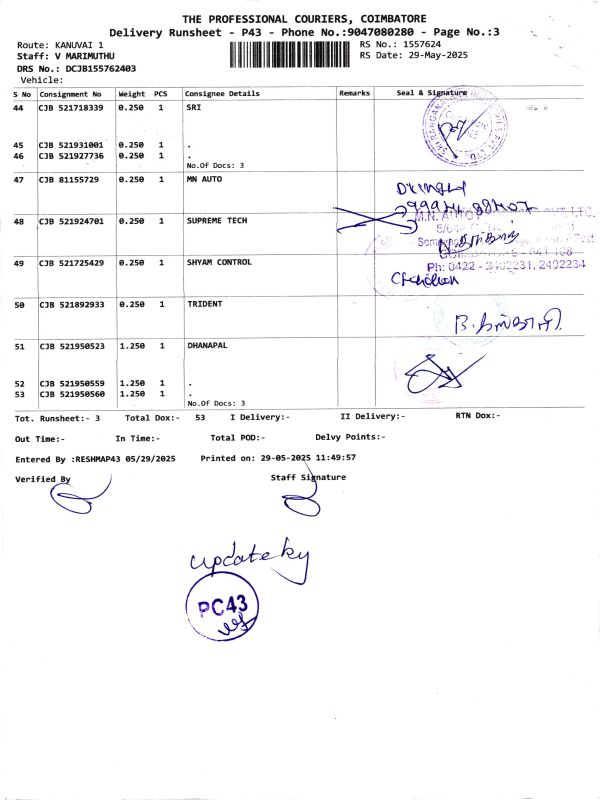 THE PROFESSIONAL COURIERS, COIMBATORE
Delivery Runsheet - P43 - Phone No.:9047080280 - Page No.:3
Route: KANUVAI 1
RS No.: 1557624
Staff: V MARIMUTHU
RS Date: 29-May-2025
DRS No.: DCJB155762403
Vehicle:
S No Consignment No Weight PCS Consignee Details Remarks Seal & Signature
44 CJB 521718339 0.250 1 SRI
45 CJB 521931001 0.250 1 .
46 CJB 521927736 0.250 1 .
No.Of Docs: 3
47 CJB 81155729 0.250 1 MN AUTO
48 CJB 521924701 0.250 1 SUPREME TECH
M.N. AUTO
LTD.
49 CJB 521725429 0.250 1 SHYAM CONTROL
Ph: 0422 - 2402231, 2402234
50 CJB 521892933 0.250 1 TRIDENT
51 CJB 521950523 1.250 1 DHANAPAL
52 CJB 521950559 1.250 1 .
53 CJB 521950560 1.250 1 .
No.Of Docs: 3
Tot. Runsheet:- 3 Total Dox:- 53 I Delivery:- II Delivery:- RTN Dox:-
Out Time:- In Time:- Total POD:- Delvy Points:-
Entered By :RESHMAP43 05/29/2025 Printed on: 29-05-2025 11:49:57
Verified By Staff Signature
PC43